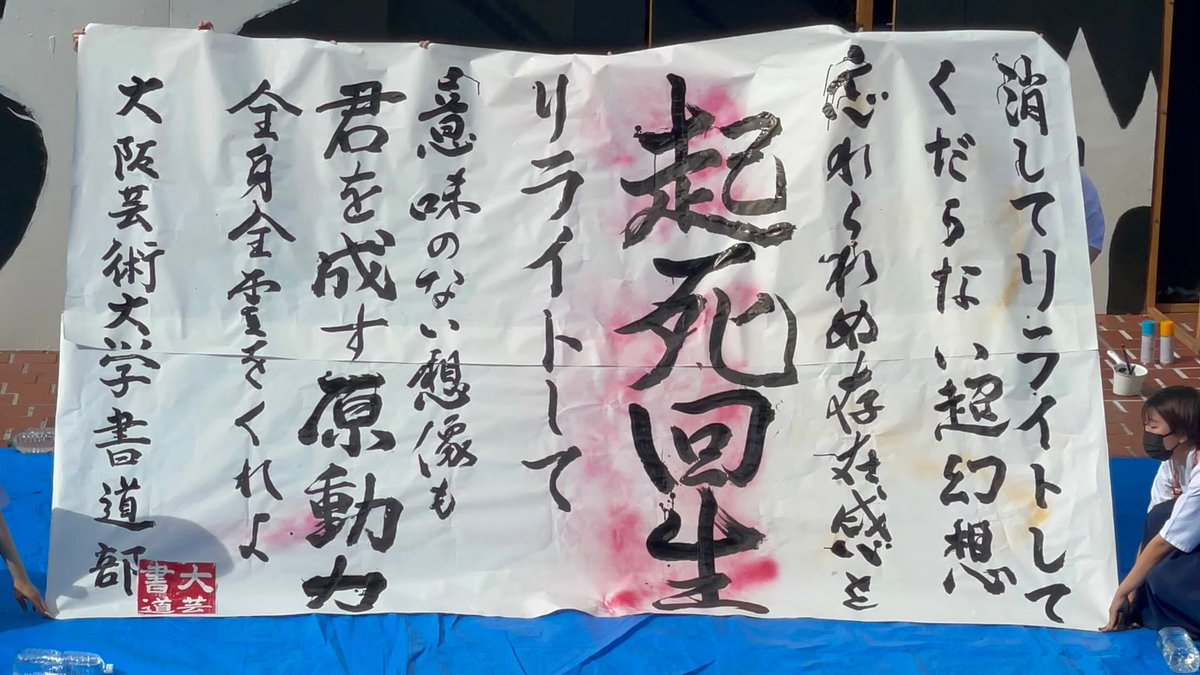 消してリライトして
くだらない超幻想
忘れられぬ存在感を
起死回生
リライトして
意味のない想像も
君を成す原動力
全身全霊をくれよ
大阪芸術大学書道部
大芸
書道